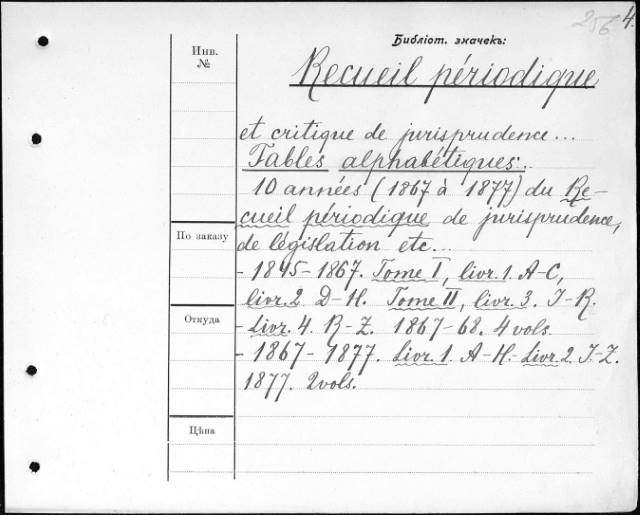 256 4.
Библіот. значекъ:
Инв.
№
Recueil périodique
et critique de jurisprudence...
Tables alphabétiques:..
10 années (1867 à 1877) du Re-
cueil périodique de jurisprudence,
По заказу
de législation etc...
- 1845-1867. Tome I, livr. 1. A-C,
livr. 2 D-H. Tome II, livr. 3. I-R.
Откуда
- Livr. 4. R-Z. 1867-68. 4 vols.
- 1867-1877. Livr. 1. A-H.- Livr. 2. I-Z.
1877. 2 vols.
Цѣна